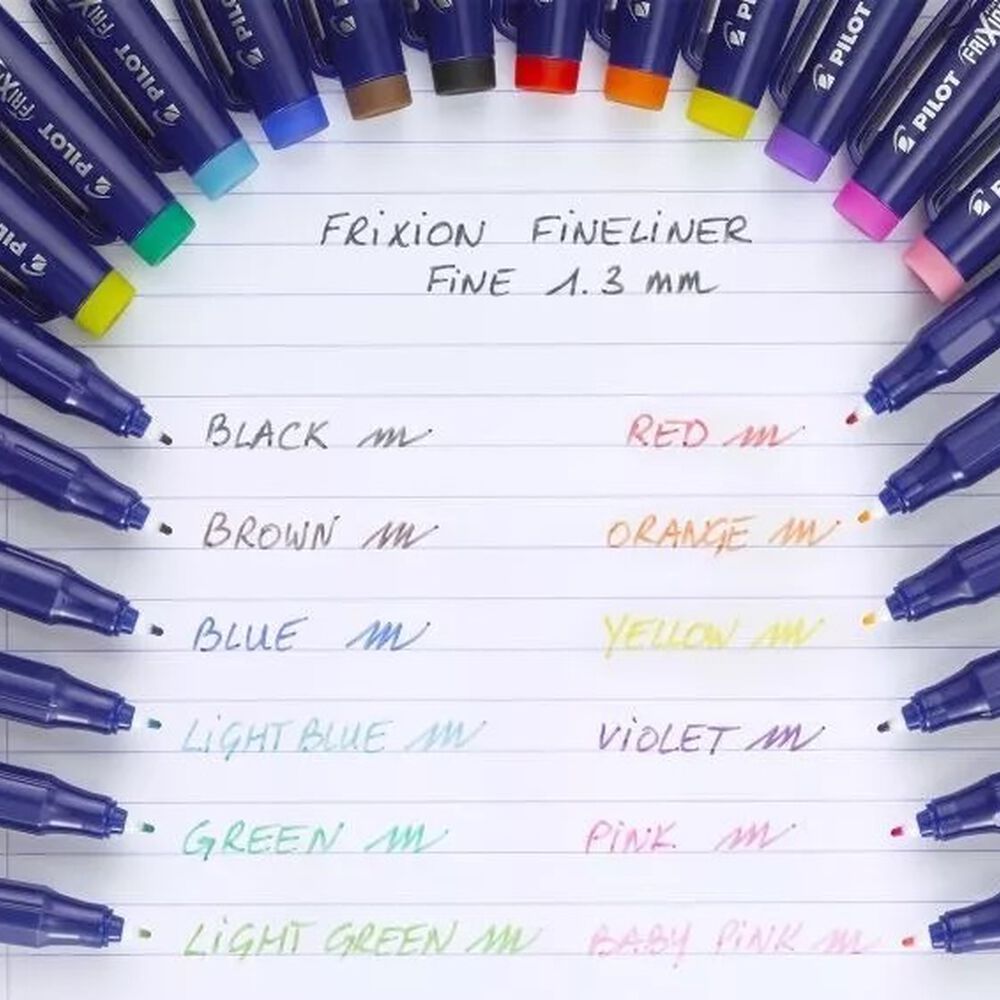 PILOT FRiXion
PILOT FRiXion
PILOT
PILOT
PILOT
PILOT FRiXion
FRiXiON FiNELiNER
FiNE 1.3 mm
BLACK
RED
BROWN
ORANGE
BLUE
YELLOW
LiGHT BLUE
ViOLET
GREEN
PiNK
LiGHT GREEN
BABY PiNK